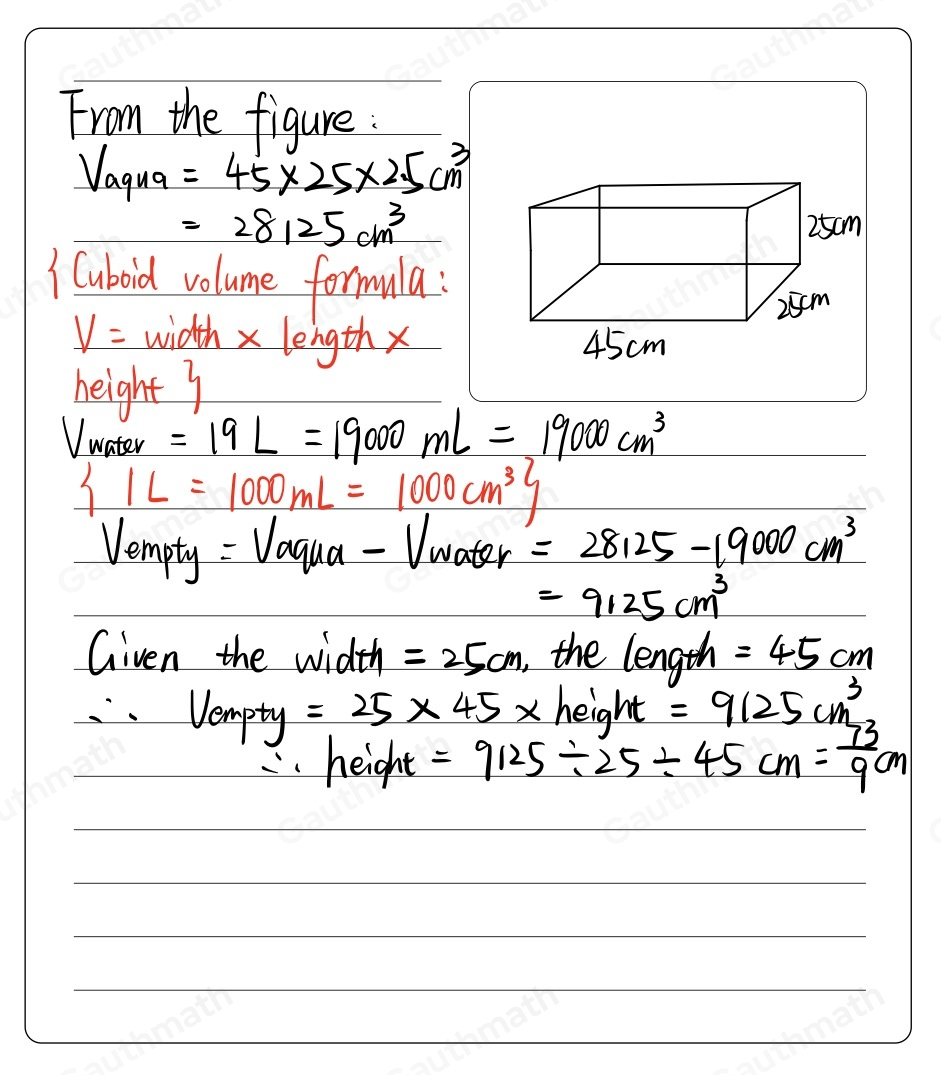 From the figure:
Vaqua = 45×25×25cm³
= 28125 cm³
{Cuboid volume formula:
V = width × length ×
height}
25cm
25cm
45cm
Vwater = 19 L = 19000 mL = 19000 cm³
{ 1 L = 1000 mL = 1000 cm³}
Vempty = Vaqua - Vwater = 28125 - 19000 cm³
= 9125 cm³
Given the width = 25cm, the length = 45 cm
∴ Vempty = 25 × 45 × height = 9125 cm³
∴ height = 9125 ÷ 25 ÷ 45 cm = 73/9 cm
Gauthmath